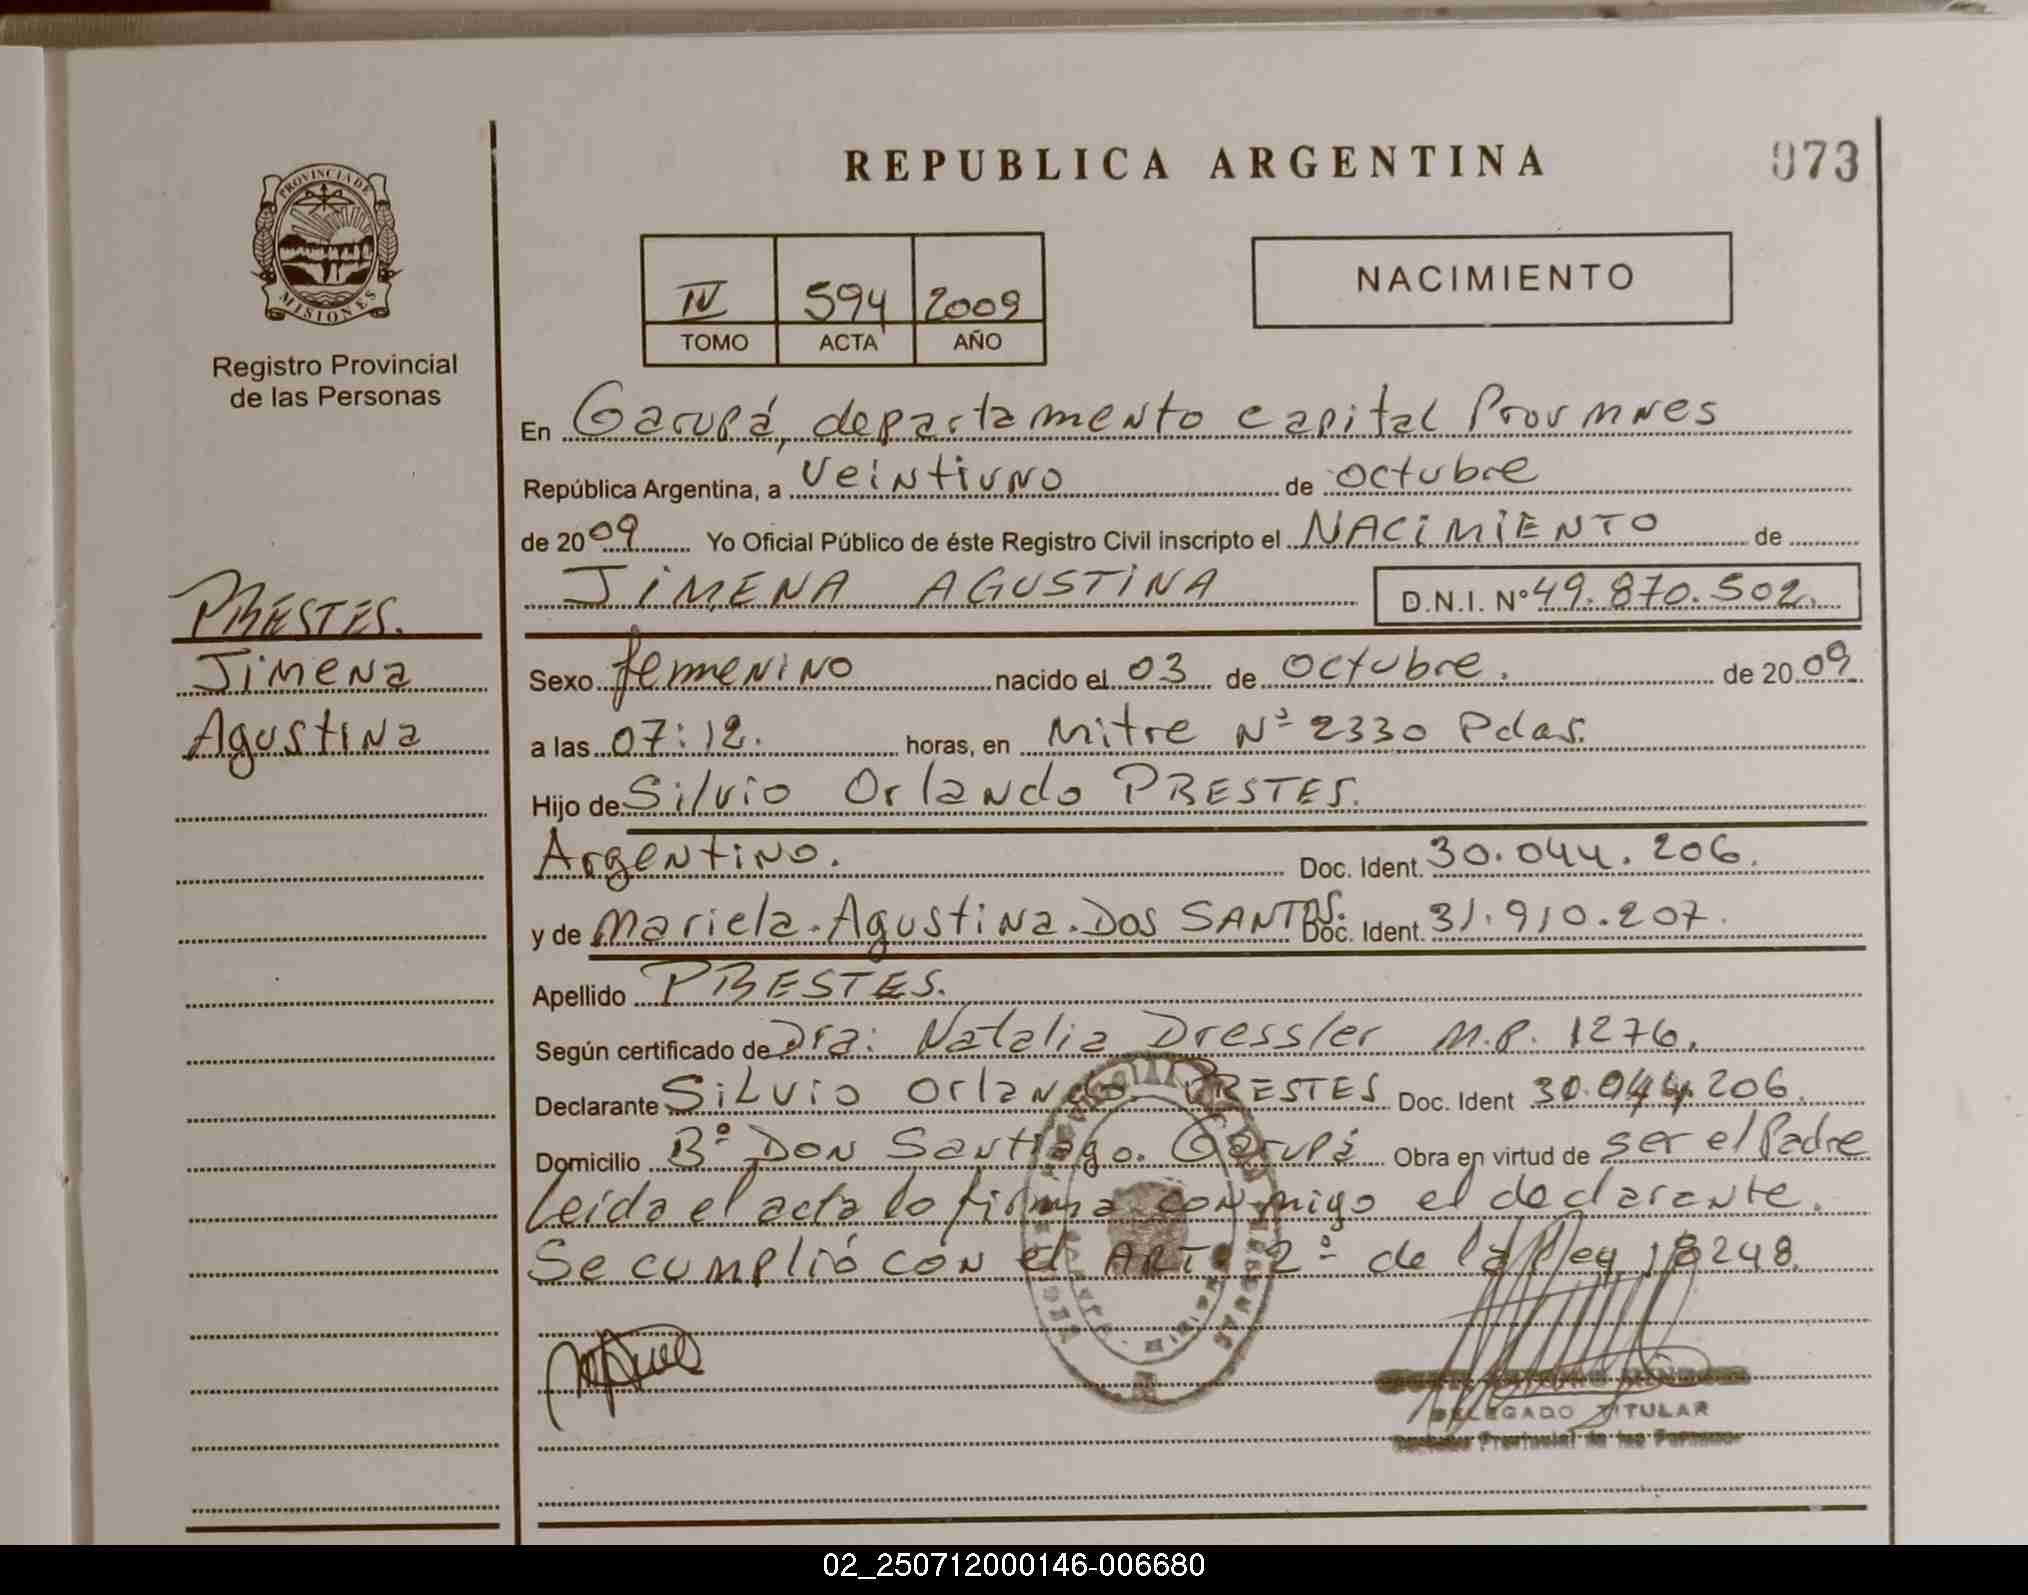 REPUBLICA ARGENTINA
073
PROVINCIA DE
MISIONES
Registro Provincial
de las Personas
IV 594 2009
TOMO ACTA AÑO
NACIMIENTO
En Garupá, departamento capital Prov mnes
República Argentina, a veintiuno de octubre
de 2009 Yo Oficial Público de éste Registro Civil inscripto el NACIMIENTO de
JIMENA AGUSTINA D.N.I. Nº 49.870.502.
PRESTES.
Jimena
Agustina
Sexo femenino nacido el 03 de octubre. de 2009
a las 07:12. horas, en Mitre Nº 2330 Pdas.
Hijo de Silvio Orlando PRESTES.
Argentino. Doc. Ident. 30.044.206.
y de Mariela Agustina Dos SANTOS. Doc. Ident. 31.910.207.
Apellido PRESTES.
Según certificado de Dra: Natalia Dressler M.P. 1276.
Declarante Silvio Orlando PRESTES Doc. Ident 30.044.206.
Domicilio Bº DON Santiago. Garupá Obra en virtud de ser el Padre
Leída el acta lo firma conmigo el declarante.
Se cumplió con el ART. 2º de la ley 18248.
DELEGADO TITULAR
Provincial de las Personas
02_250712000146-006680